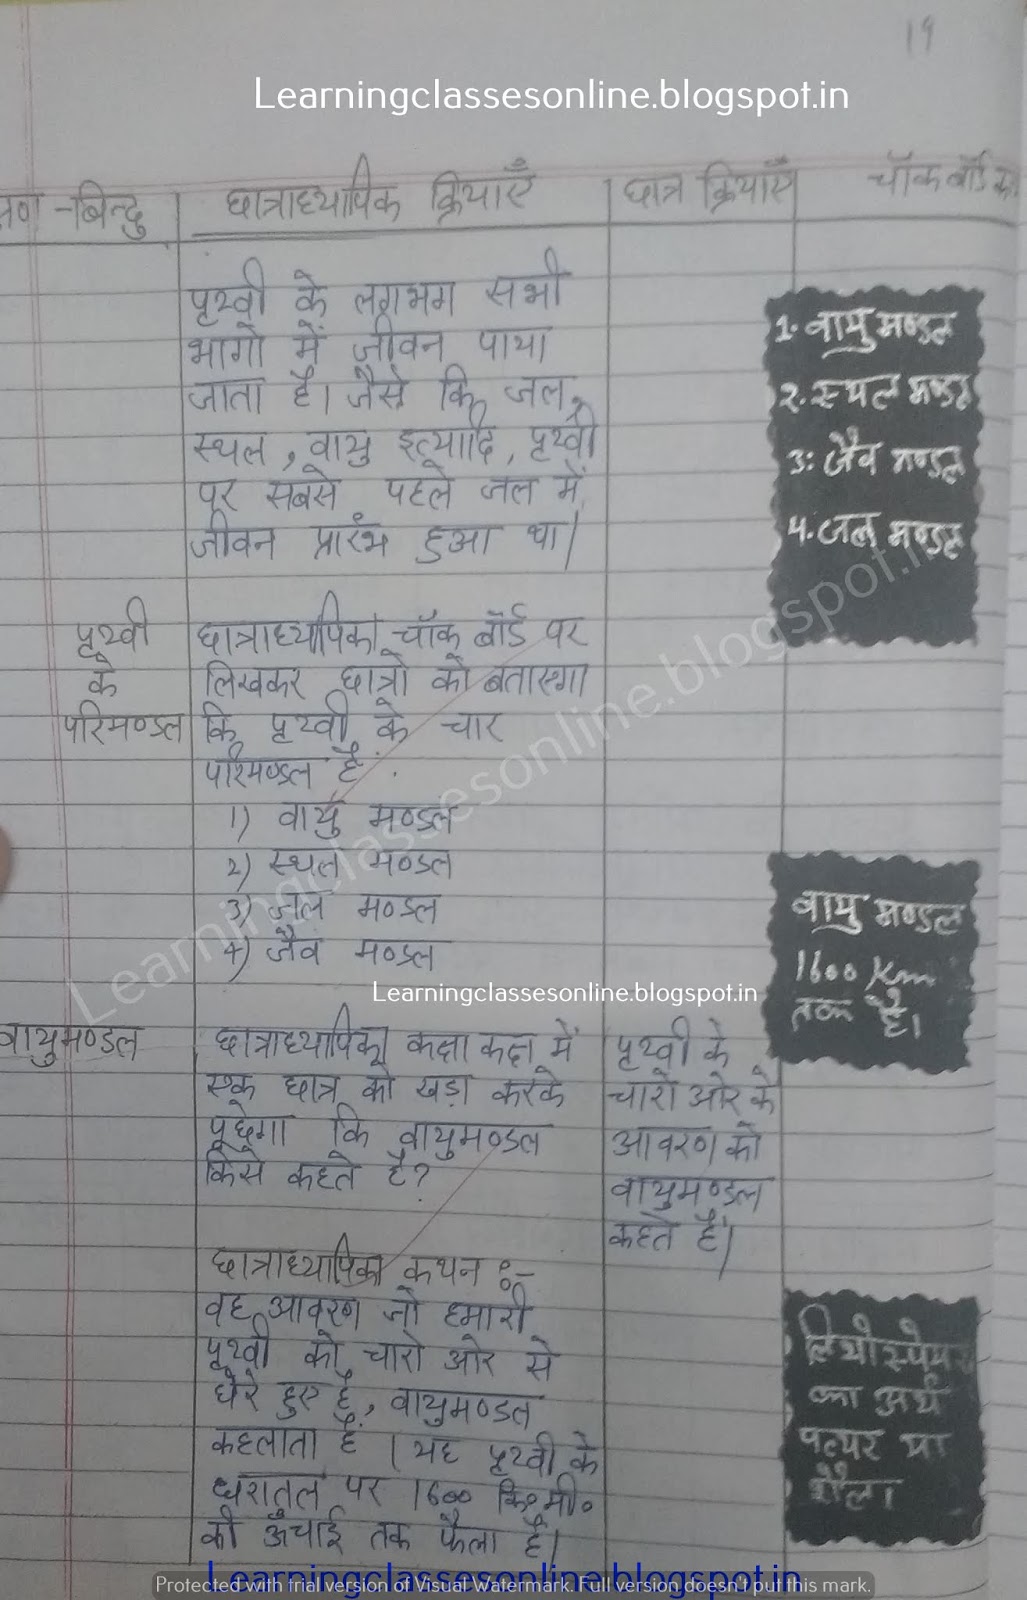 19
Learningclassesonline.blogspot.in
-बिन्दु छात्राध्यापिक क्रियाएँ छात्र क्रियाएँ चॉक बॉर्ड
पृथ्वी के लगभग सभी
भागो में जीवन पाया
जाता है। जैसे कि जल,
स्थल, वायु इत्यादि, पृथ्वी
पर सबसे पहले जल में
जीवन प्रारंभ हुआ था।
1. वायु मण्डल
2. स्थल मण्डल
3: जैव मण्डल
4. जल मण्डल
पृथ्वी
के
परिमण्डल
छात्राध्यापिका चॉक बॉर्ड पर
लिखकर छात्रो को बताएगा
कि पृथ्वी के चार
परिमण्डल है
1) वायु मण्डल
2) स्थल मण्डल
3) जल मण्डल
4) जैव मण्डल
वायु मण्डल
1600 Km
तक है।
Learningclassesonline.blogspot.in
Learningclassesonline.blogspot.in
वायुमण्डल
छात्राध्यापिका कक्षा कक्ष में
एक छात्र को खड़ा करके
पूछेगा कि वायुमण्डल
किसे कहते है?
पृथ्वी के
चारो ओर के
आवरण को
वायुमण्डल
कहते है।
छात्राध्यापिका कथन :-
वह आवरण जो हमारी
पृथ्वी को चारो ओर से
घेरे हुए है, वायुमण्डल
कहलाता है। यह पृथ्वी के
धरातल पर 1600 कि०मी०
की ऊँचाई तक फैला है।
लिथोस्पेयर
का अर्थ
पत्थर या
शैल।
Learningclassesonline.blogspot.in
Protected with trial version of Visual Watermark. Full version doesn't put this mark.